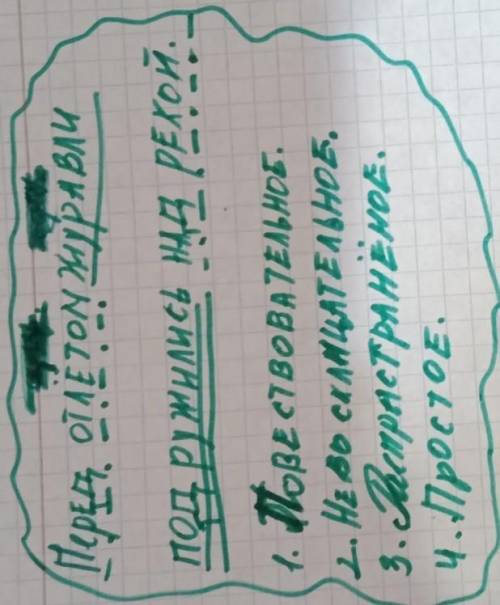 Перед отлётом журавли
подружились над рекой.
1. Повествовательное.
2. Невосклицательное.
3. Распрастранёное.
4. Простое.